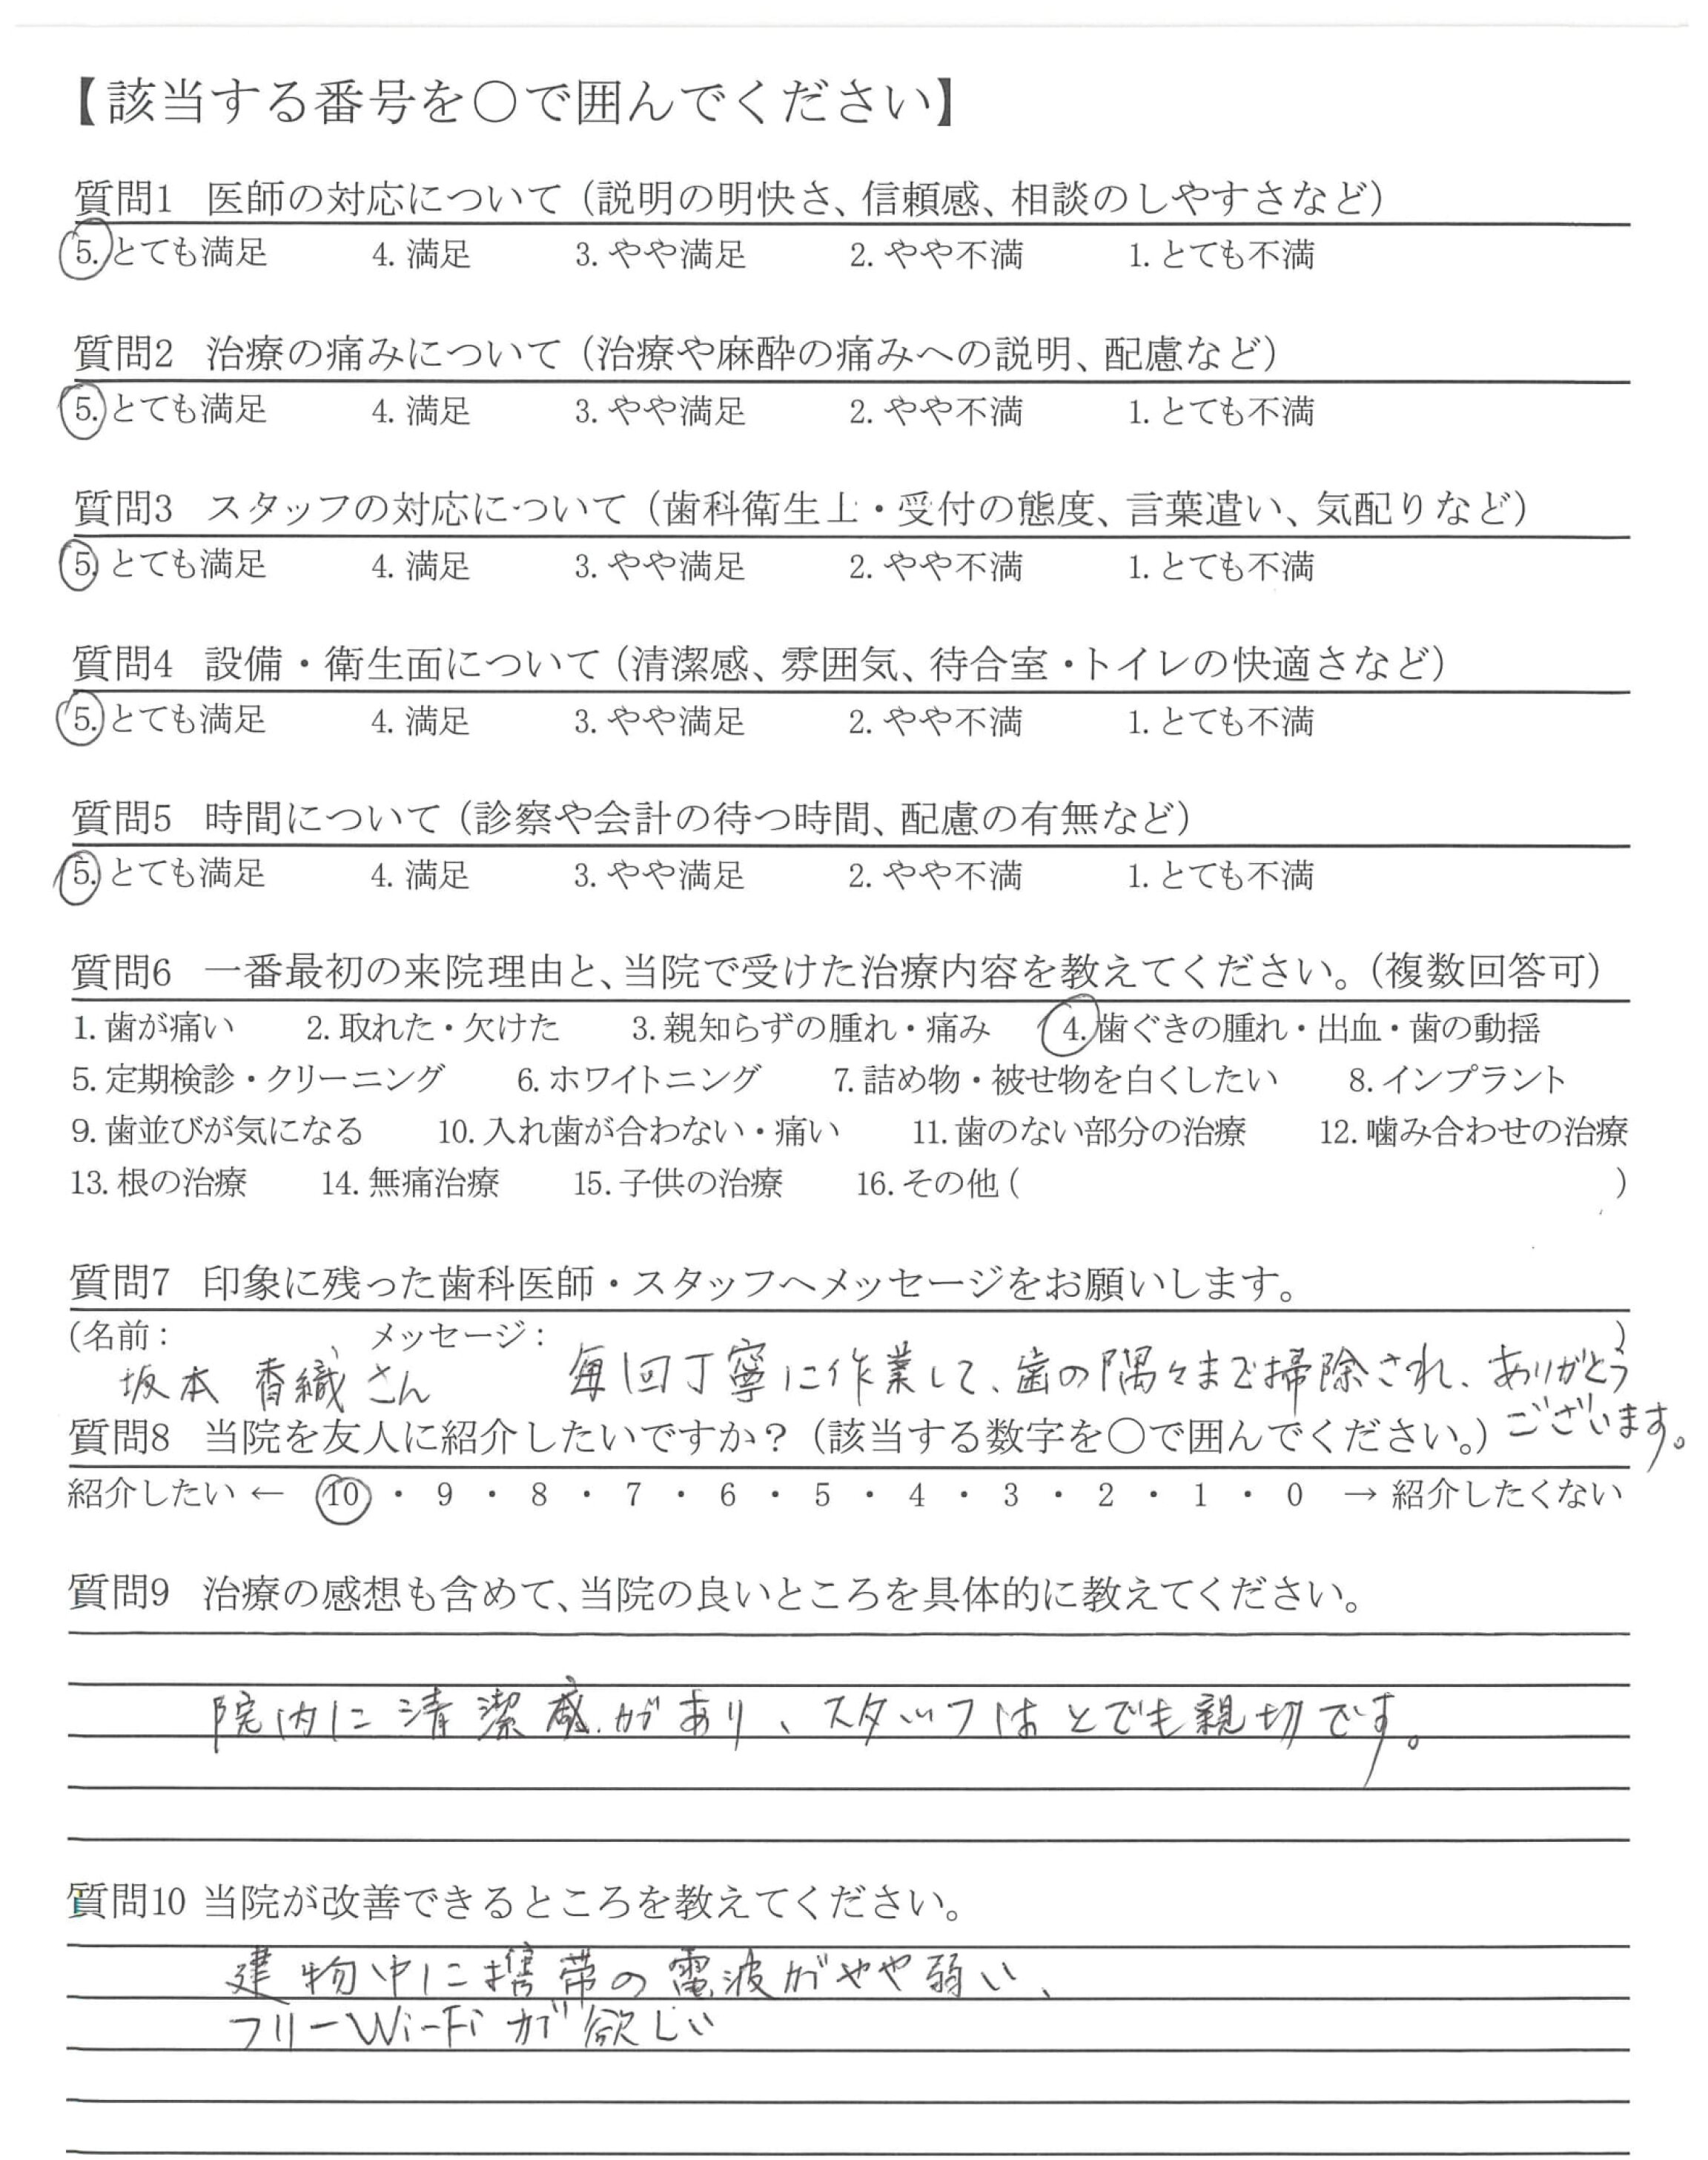 【該当する番号を〇で囲んでください】
質問1 医師の対応について（説明の明快さ、信頼感、相談のしやすさなど）
5. とても満足 4. 満足 3. やや満足 2. やや不満 1. とても不満
質問2 治療の痛みについて（治療や麻酔の痛みへの説明、配慮など）
5. とても満足 4. 満足 3. やや満足 2. やや不満 1. とても不満
質問3 スタッフの対応について（歯科衛生士・受付の態度、言葉遣い、気配りなど）
5. とても満足 4. 満足 3. やや満足 2. やや不満 1. とても不満
質問4 設備・衛生面について（清潔感、雰囲気、待合室・トイレの快適さなど）
5. とても満足 4. 満足 3. やや満足 2. やや不満 1. とても不満
質問5 時間について（診察や会計の待つ時間、配慮の有無など）
5. とても満足 4. 満足 3. やや満足 2. やや不満 1. とても不満
質問6 一番最初の来院理由と、当院で受けた治療内容を教えてください。（複数回答可）
1. 歯が痛い 2. 取れた・欠けた 3. 親知らずの腫れ・痛み 4. 歯ぐきの腫れ・出血・歯の動揺
5. 定期検診・クリーニング 6. ホワイトニング 7. 詰め物・被せ物を白くしたい 8. インプラント
9. 歯並びが気になる 10. 入れ歯が合わない・痛い 11. 歯のない部分の治療 12. 噛み合わせの治療
13. 根の治療 14. 無痛治療 15. 子供の治療 16. その他（ ）
質問7 印象に残った歯科医師・スタッフへメッセージをお願いします。
（名前： メッセージ： ）
坂本 香織さん 毎回丁寧に作業して、歯の隅々まで掃除され、ありがとう
ございます。
質問8 当院を友人に紹介したいですか？（該当する数字を〇で囲んでください。）
紹介したい ← 10 ・ 9 ・ 8 ・ 7 ・ 6 ・ 5 ・ 4 ・ 3 ・ 2 ・ 1 ・ 0 → 紹介したくない
質問9 治療の感想も含めて、当院の良いところを具体的に教えてください。
院内に清潔感があり、スタッフはとでも親切です。
質問10 当院が改善できるところを教えてください。
建物中に携帯の電波がやや弱い、
フリーWi-Fiが欲しい